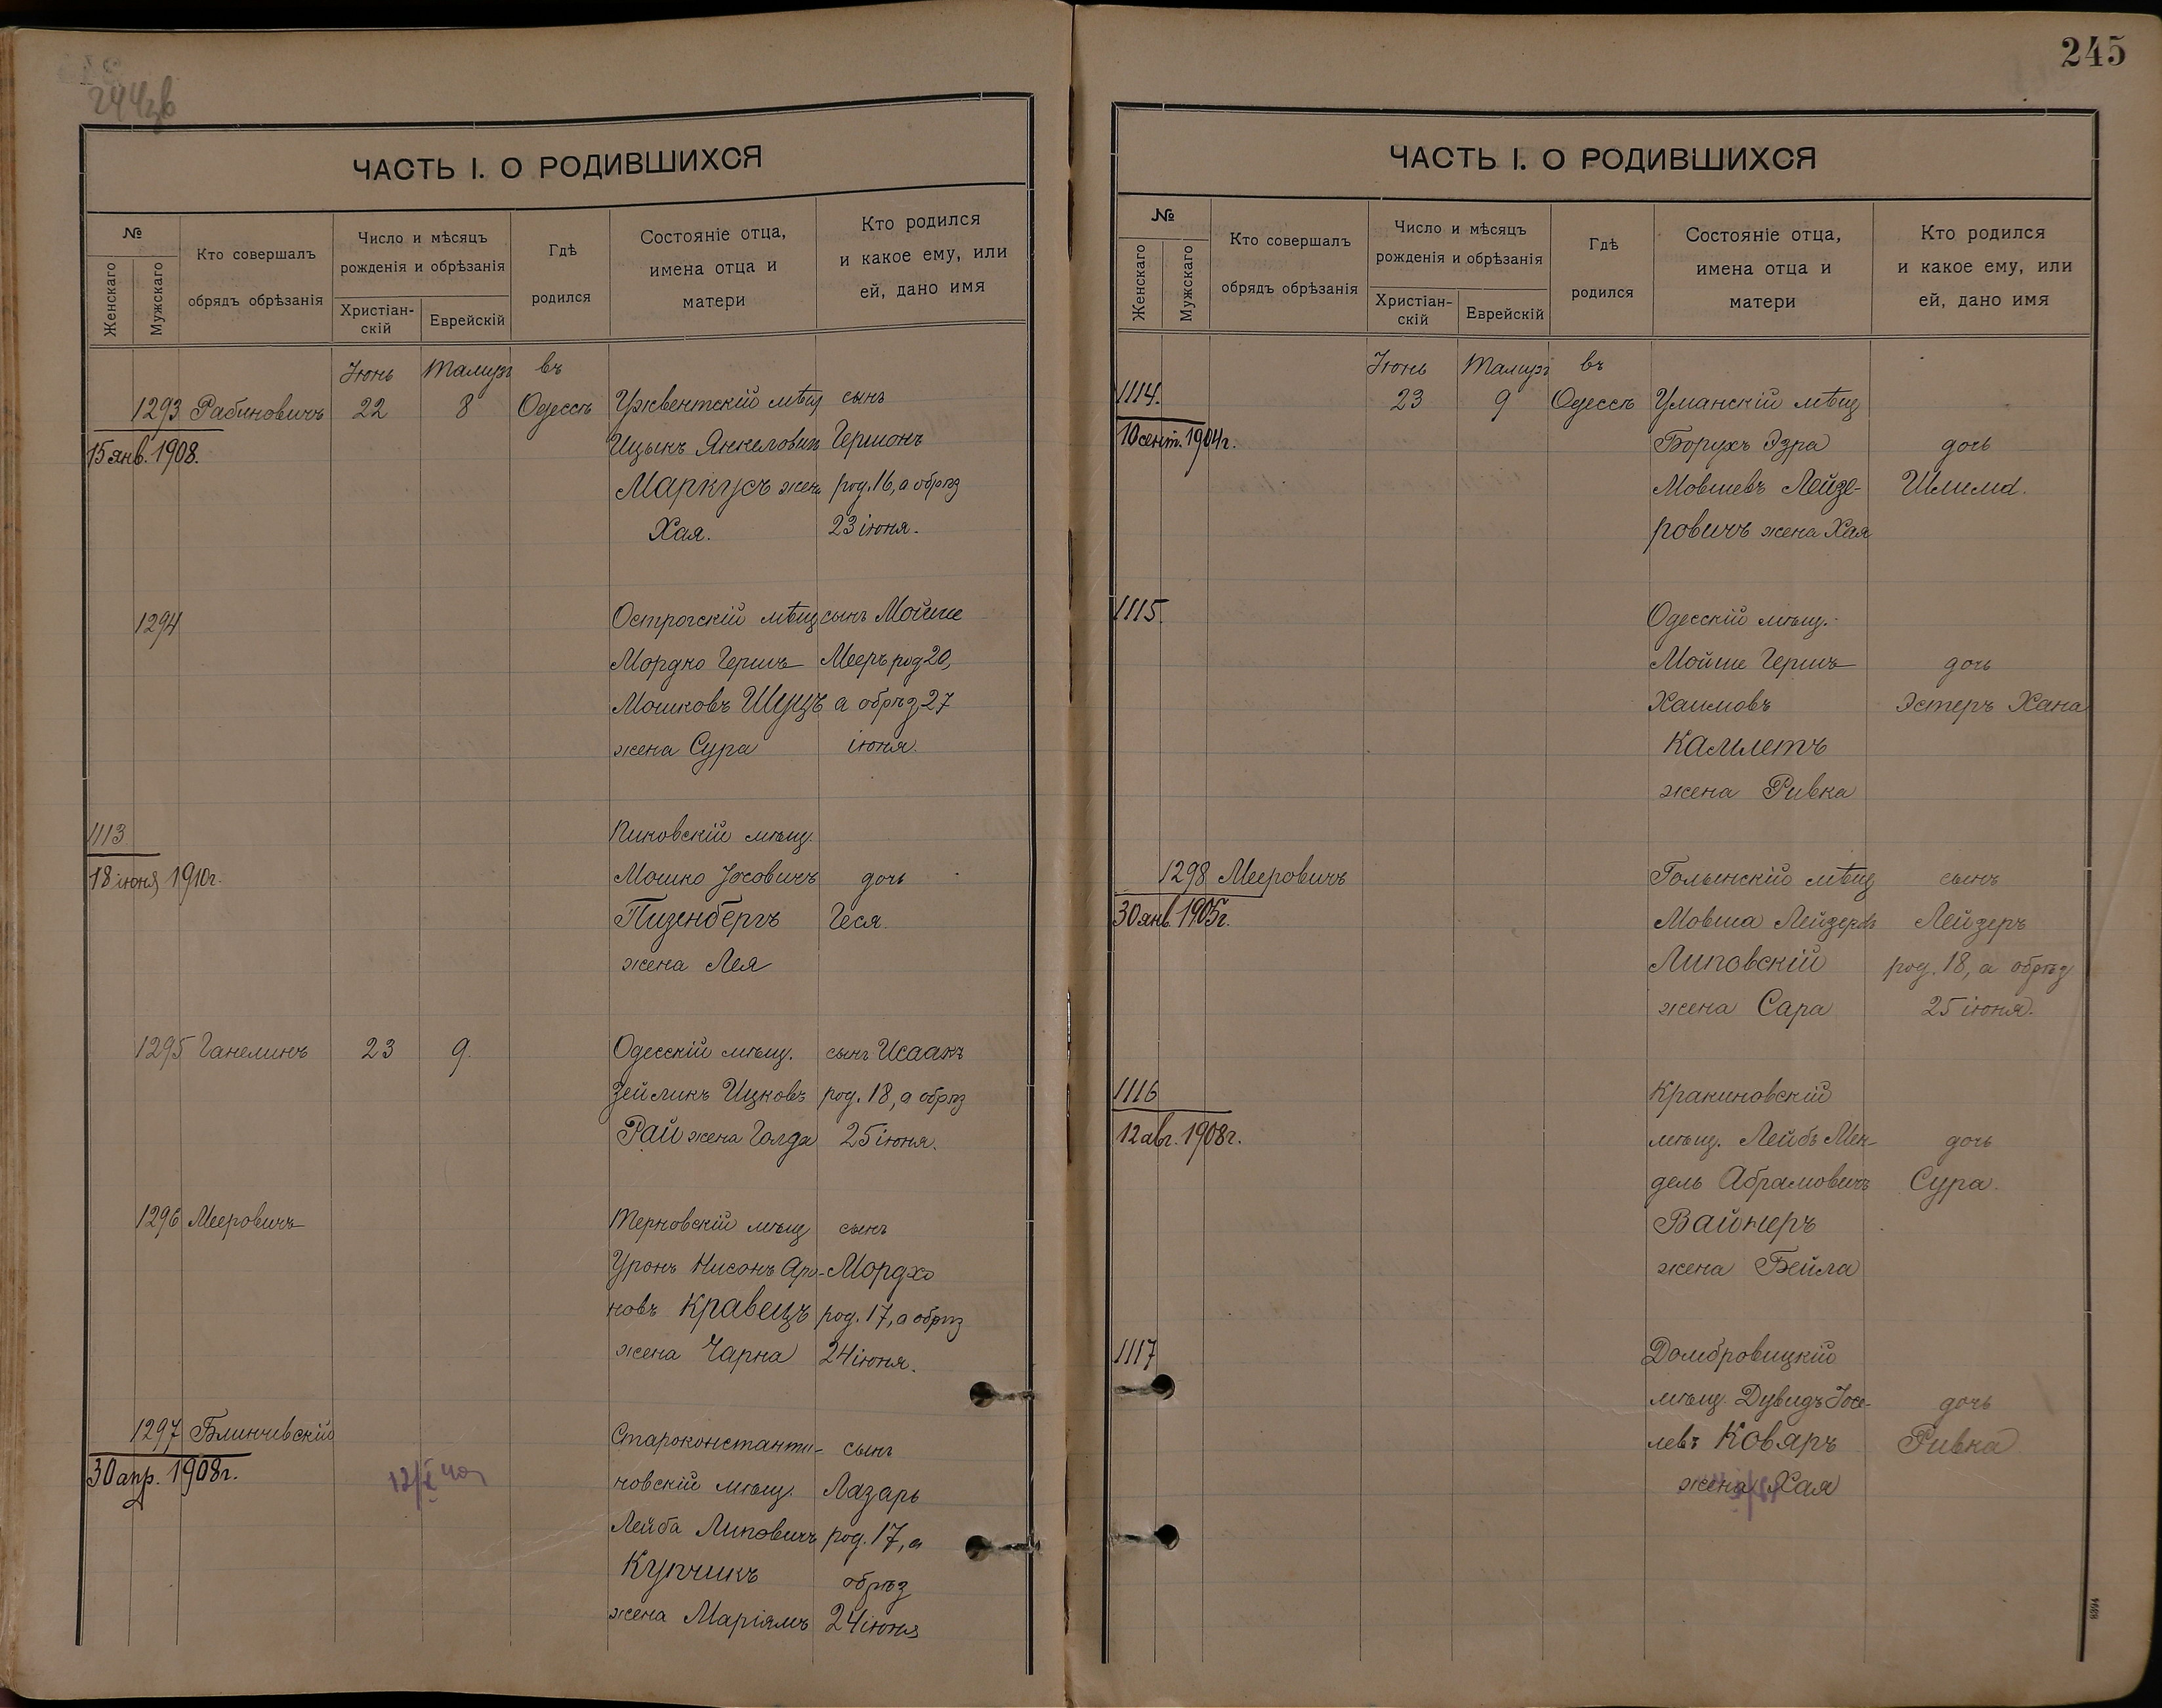 244зв
ЧАСТЬ I. О РОДИВШИХСЯ
№
Женскаго
Мужскаго
Кто совершалъ
обрядъ обрѣзанія
Число и мѣсяцъ
рожденія и обрѣзанія
Христіан-
скій
Еврейскій
Гдѣ
родился
Состояніе отца,
имена отца и
матери
Кто родился
и какое ему, или
ей, дано имя
Іюнь Тамузъ въ
1293 Рабиновичъ 22 8 Одессѣ Ужвентскій мѣщ сынъ
15 янв. 1908. Ицыкъ Янкеловичъ Гершонъ
Маркусъ жена род. 16, а обрѣз
Хая. 23 іюня.
1294 Острогскій мѣщ сынъ Мойше
Мордко Гершъ Мееръ род 20,
Мошковъ Шуцъ а обрѣз 27
жена Сура іюня.
1113 Пиковскій мѣщ.
18 іюня 1910г. Мошко Іосовичъ дочь
Пизенбергъ Геся.
жена Лея
1295 Ганелинъ 23 9. Одесскій мѣщ. сынъ Исаакъ
Зейликъ Ицковъ род. 18, а обрѣз
Рай жена Голда 25 іюня.
1296 Мееровичъ Терновскій мѣщ сынъ
Уронъ Нисонъ Аро- Мордхо
новъ Кравецъ род. 17, а обрѣз
жена Чарна 24 іюня.
1297 Блинчевскій Староконстанти- сынъ
30 апр. 1908г. новскій мѣщ. Лазарь
Лейба Липовичъ род. 17, а
Купчикъ обрѣз
жена Маріямъ 24 іюня
245
ЧАСТЬ I. О РОДИВШИХСЯ
№
Женскаго
Мужскаго
Кто совершалъ
обрядъ обрѣзанія
Число и мѣсяцъ
рожденія и обрѣзанія
Христіан-
скій
Еврейскій
Гдѣ
родился
Состояніе отца,
имена отца и
матери
Кто родился
и какое ему, или
ей, дано имя
Іюнь Тамузъ въ
1114. 23 9 Одессѣ Уманскій мѣщ
10 сент. 1904г. Борухъ Эзра дочь
Мовшевъ Лейзе-
ровичъ жена Хая
1115. Одесскій мѣщ.
Мойше Гершъ дочь
Хаимовъ Эстеръ Хана
Камлетъ
жена Ривка
1298 Мееровичъ Гольынскій мѣщ сынъ
30 янв. 1905г. Мовша Лейзеровъ Лейзеръ
Липовскій род. 18, а обрѣз
жена Сара 25 іюня.
1116 Кракиновскій
12 авг. 1908г. мѣщ. Лейбъ Мен- дочь
дель Абрамовичъ Сура.
Вайнеръ
жена Бейла
1117 Домбровицкій
мѣщ. Дувидъ Іосе- дочь
левъ Коваръ Ривка
жена Хая
8394